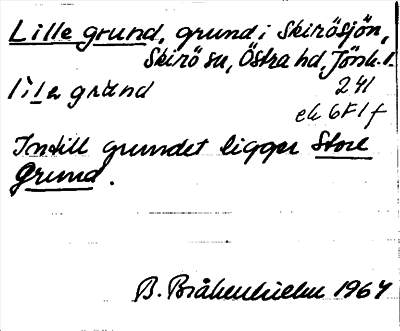 Lille grund, grund i Skirösjön,
Skirö sn, Östra hd, Jönk. l.
lìle grànd
241
ek 6F1f
Intill grundet ligger Store
grund.
B. Bråkenhielm 1967